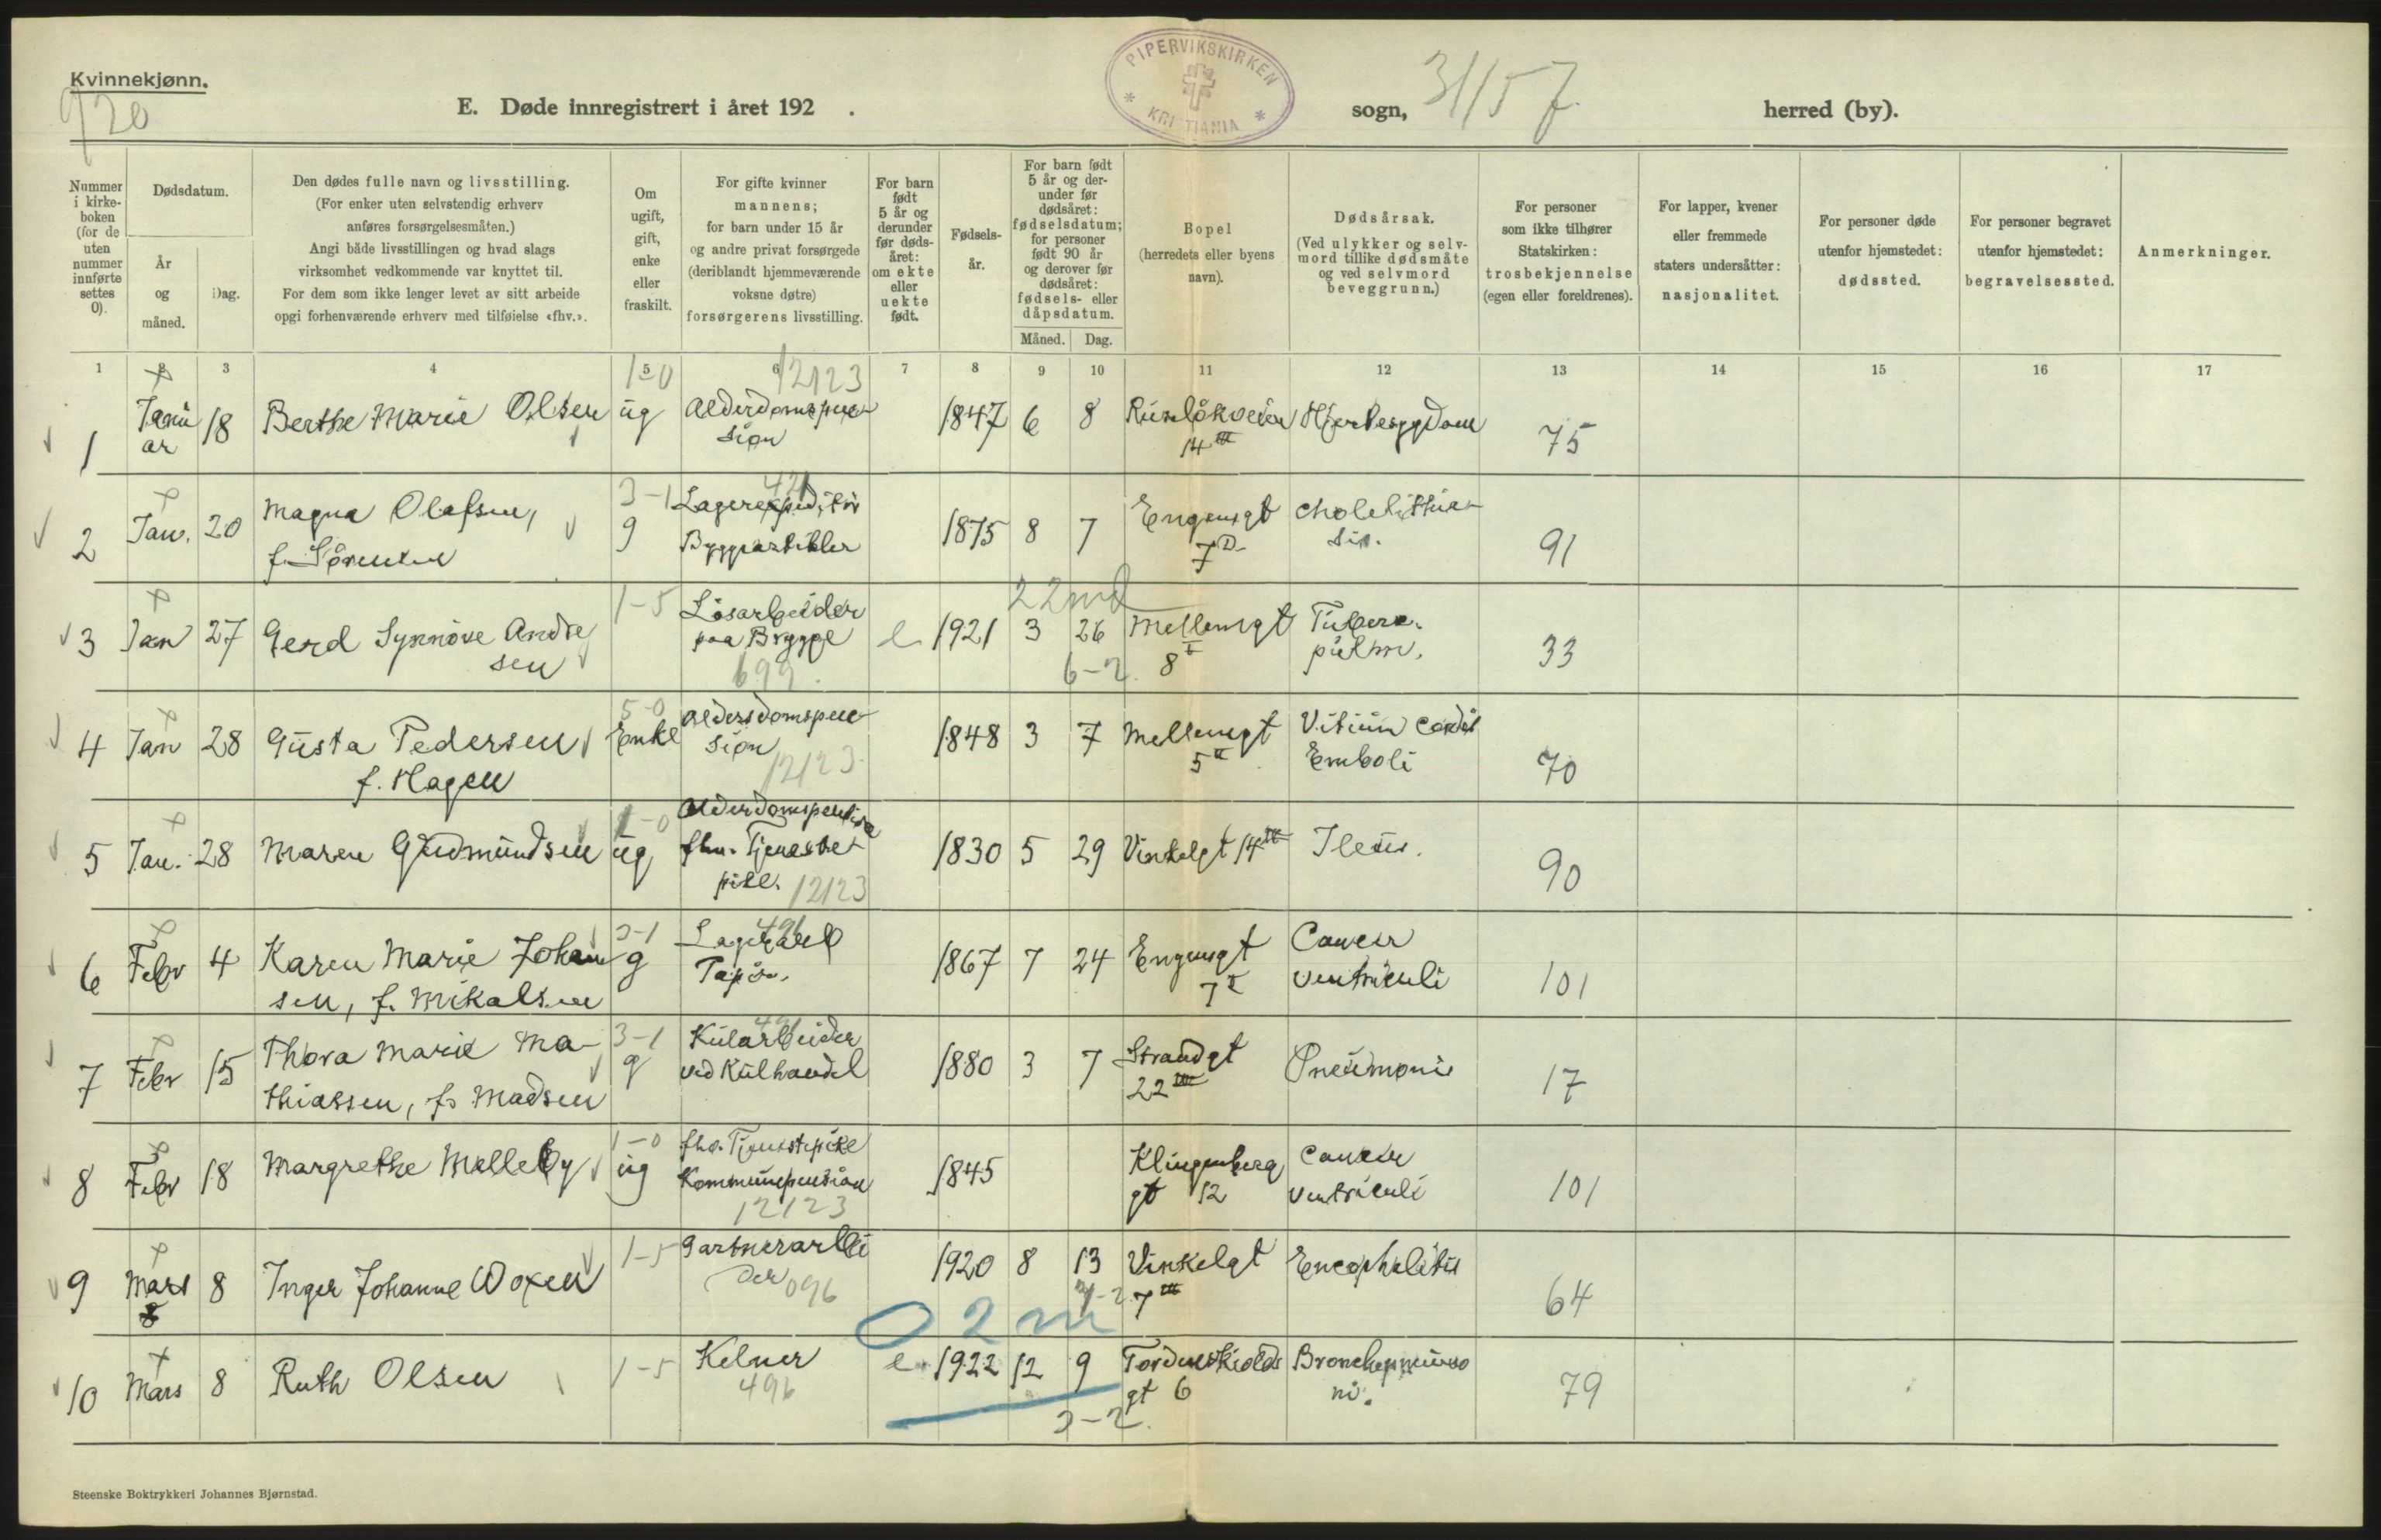 Kvinnekjønn.
920
E. Døde innregistrert i året 192 .
PIPERVIKSKIRKEN
* KRISTIANIA *
sogn,
3/157
herred (by).
Nummer i kirke-boken (for de uten nummer innførte settes 0).
Dødsdatum.
År og måned.
Dag.
Den dødes fulle navn og livsstilling.
(For enker uten selvstendig erhverv
anføres forsørgelsesmåten.)
Angi både livsstillingen og hvad slags
virksomhet vedkommende var knyttet til.
For dem som ikke lenger levet av sitt arbeide
opgi forhenværende erhverv med tilføielse «fhv.».
Om ugift, gift, enke eller fraskilt.
For gifte kvinner
mannens;
for barn under 15 år
og andre privat forsørgede
(deriblandt hjemmeværende
voksne døtre)
forsørgerens livsstilling.
For barn født 5 år og derunder før døds-året: om ekte eller uekte født.
Fødsels-år.
For barn født 5 år og der-under før dødsåret: fødselsdatum; for personer født 90 år og derover før dødsåret: fødsels- eller dåpsdatum.
Måned. Dag.
Bopel
(herredets eller byens
navn).
Dødsårsak.
(Ved ulykker og selv-
mord tillike dødsmåte
og ved selvmord
beveggrunn.)
For personer
som ikke tilhører
Statskirken:
trosbekjennelse
(egen eller foreldrenes).
For lapper, kvener
eller fremmede
staters undersåtter:
nasjonalitet.
For personer døde
utenfor hjemstedet:
dødssted.
For personer begravet
utenfor hjemstedet:
begravelsessted.
Anmerkninger.
1 2 3 4 5 6 7 8 9 10 11 12 13 14 15 16 17
1-0 12123
1 Januar 18 Berthe Marie Olsen ug Alderdomspension 1847 6 8 Runløkveien 14 III Hjertesygdom 75
3-1 421
2 Jan. 20 Magna Olafsen, f. Sørensen g Lagerexpeditør Byggeartikler 1875 8 7 Engensgt 7 D Cholelithiasis. 91
1-5 22 md
3 Jan 27 Gerd Synnøve Andresen Løsarbeider paa Brygge e 1921 3 26 Mellemgt 8 I Tuberc. pulm. 33
699. 6-2.
5-0
4 Jan 28 Gusta Pedersen f. Hagen Enke Aldersdomspension 1848 3 7 Mellemgt 5 II Vitium cordis Emboli 70
12123.
1-0
5 Jan. 28 Maren Gudmundsen ug Alderdomspension fhv. Tjenestepike. 1830 5 29 Vinkelgt 14 IV Ileus. 90
12123
3-1 421
6 Febr 4 Karen Marie Johansen, f. Mikalsen g Lagerarb Papir. 1867 7 24 Engensgt 7 I Cancer ventriculi 101
3-1 421
7 Febr 15 Thora Marie Mathiassen, f. Madsen g Kularbeider ved Kulhandel 1880 3 7 Strandgt 22 III Pneumonie 17
1-0
8 Febr 18 Margrethe Melleby ug fhv. Tjenestepike Kommunepension 1845 Klingenberg gt 12 Cancer ventriculi 101
12123
1-5
9 Mars 8 Inger Johanne Woxen Gartnerarbeider 1920 8 13 Vinkelgt 7 III Encephalitis 64
096
0 2 m
1-5
10 Mars 8 Ruth Olsen Kelner e. 1922 12 9 Tordenskiolds gt 6 Bronchopneumoni. 79
496 3-2.
Steenske Boktrykkeri Johannes Bjørnstad.